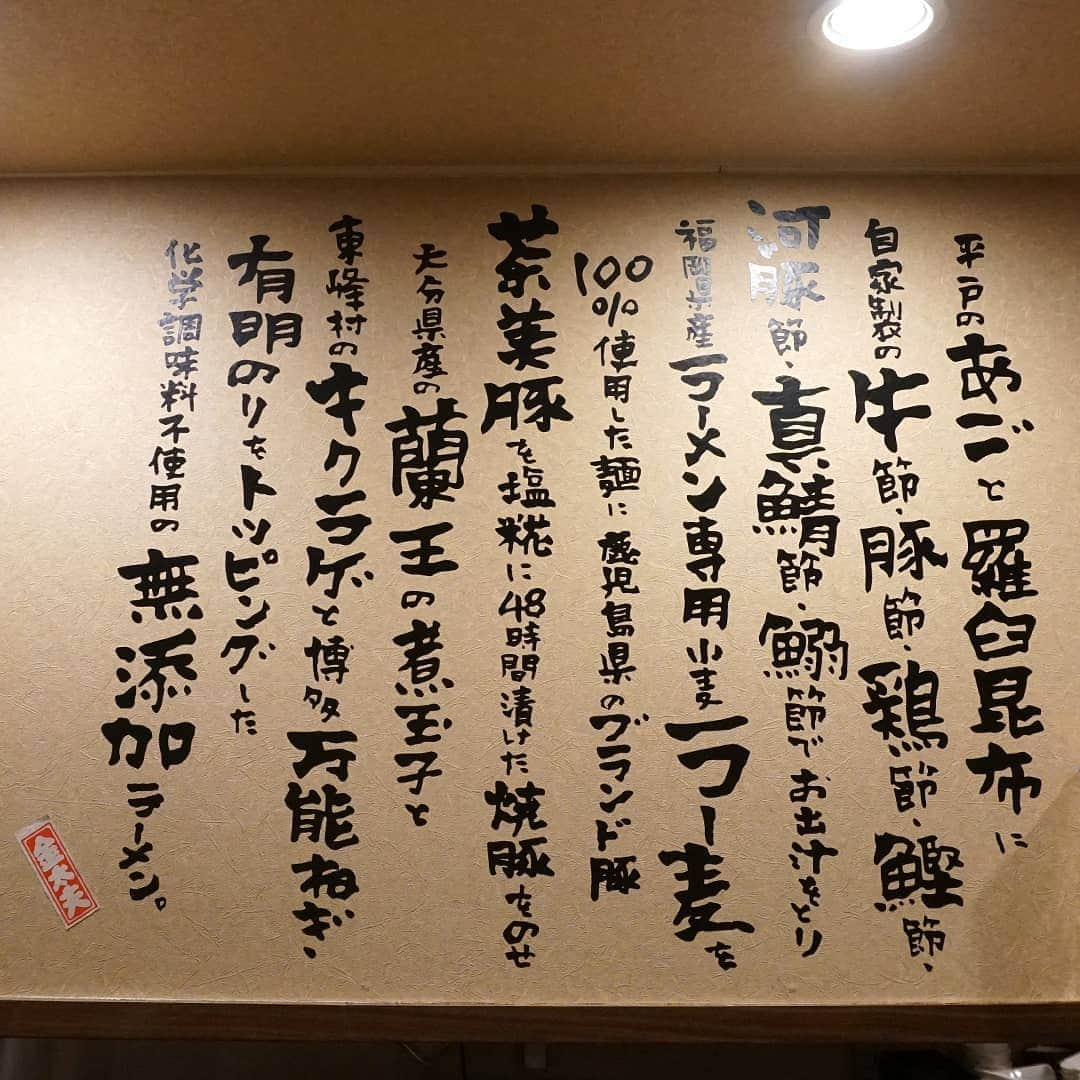 平戸のあごと羅臼昆布に
自家製の牛節、豚節、鶏節、鰹節、
河豚節、真鯖節、鰯節でお出汁をとり
福岡県産ラーメン専用小麦ラー麦を
100%使用した麺に鹿児島県のブランド豚
茶美豚を塩糀に48時間漬けた焼豚をのせ
大分県産の蘭王の煮玉子と
東峰村のキクラゲと博多万能ねぎ、
有明のりをトッピングした
化学調味料不使用の無添加ラーメン。
金太夫